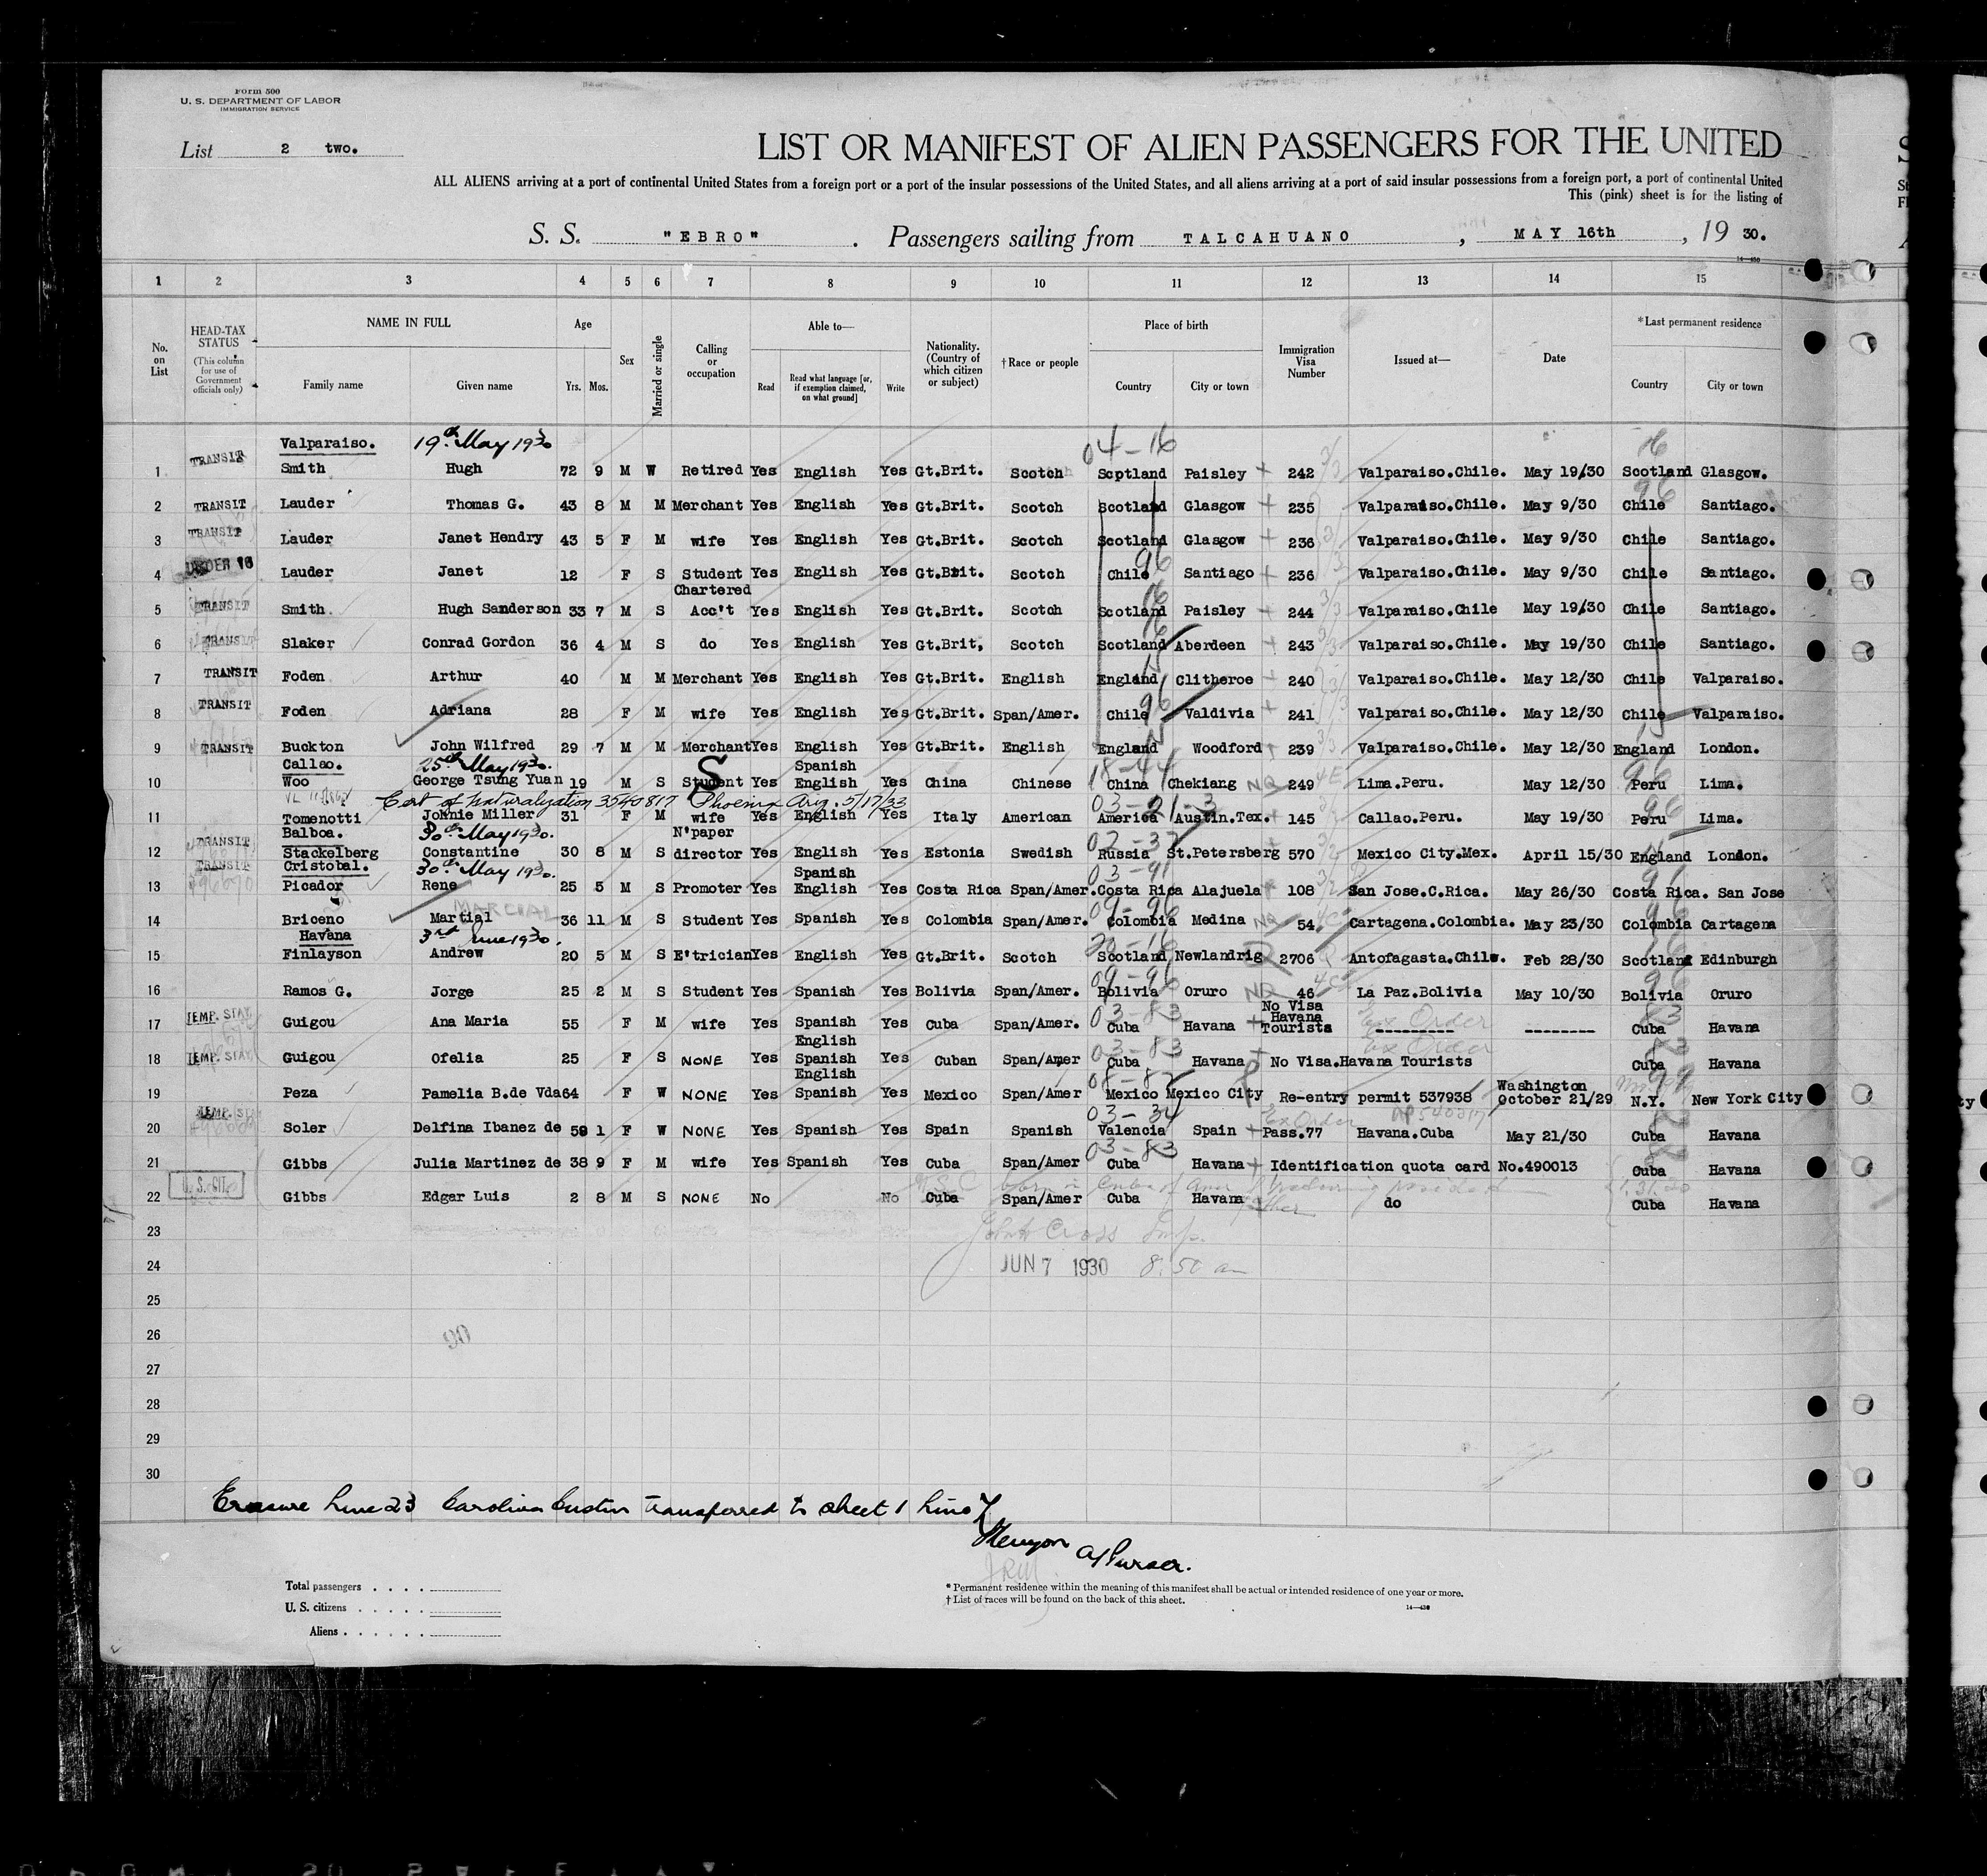 Form 500
U. S. DEPARTMENT OF LABOR
IMMIGRATION SERVICE
List 2 two.
LIST OR MANIFEST OF ALIEN PASSENGERS FOR THE UNITED
ALL ALIENS arriving at a port of continental United States from a foreign port or a port of the insular possessions of the United States, and all aliens arriving at a port of said insular possessions from a foreign port, a port of continental United
This (pink) sheet is for the listing of
S. S. "EBRO" . Passengers sailing from TALCAHUANO , MAY 16th , 19 30.
1 2 3 4 5 6 7 8 9 10 11 12 13 14 15
No. on List
HEAD-TAX STATUS (This column for use of Government officials only)
NAME IN FULL Family name Given name
Age Yrs. Mos.
Sex
Married or single
Calling or occupation
Able to— Read Read what language [or, if exemption claimed, on what ground] Write
Nationality. (Country of which citizen or subject)
†Race or people
Place of birth Country City or town
Immigration Visa Number
Issued at—
Date
*Last permanent residence Country City or town
Valparaiso. 19th May 1930 04-16
1 TRANSIT Smith Hugh 72 9 M W Retired Yes English Yes Gt.Brit. Scotch Scotland Paisley 242 Valparaiso.Chile. May 19/30 Scotland Glasgow.
2 TRANSIT Lauder Thomas G. 43 8 M M Merchant Yes English Yes Gt.Brit. Scotch Scotland Glasgow 235 Valparaiso.Chile. May 9/30 Chile Santiago.
3 TRANSIT Lauder Janet Hendry 43 5 F M wife Yes English Yes Gt.Brit. Scotch Scotland Glasgow 236 Valparaiso.Chile. May 9/30 Chile Santiago.
4 UNDER 16 Lauder Janet 12 F S Student Yes English Yes Gt.Brit. Scotch Chile Santiago 236 Valparaiso.Chile. May 9/30 Chile Santiago.
Chartered
5 TRANSIT Smith Hugh Sanderson 33 7 M S Acc't Yes English Yes Gt.Brit. Scotch Scotland Paisley 244 Valparaiso.Chile May 19/30 Chile Santiago.
6 TRANSIT Slaker Conrad Gordon 36 4 M S do Yes English Yes Gt.Brit, Scotch Scotland Aberdeen 243 Valparaiso.Chile. May 19/30 Chile Santiago.
7 TRANSIT Foden Arthur 40 M M Merchant Yes English Yes Gt.Brit. English England Clitheroe 240 Valparaiso.Chile. May 12/30 Chile Valparaiso.
8 TRANSIT Foden Adriana 28 F M wife Yes English Yes Gt.Brit. Span/Amer. Chile Valdivia 241 Valparaiso.Chile. May 12/30 Chile Valparaiso.
9 TRANSIT Buckton John Wilfred 29 7 M M Merchant Yes English Yes Gt.Brit. English England Woodford 239 Valparaiso.Chile. May 12/30 England London.
Callao. 25th May 1930. Spanish
10 Woo George Tsung Yuan 19 M S Student Yes English Yes China Chinese China Chekiang NQ 249 Lima.Peru. May 12/30 Peru Lima.
Cert of naturalization 3540817 Phoenix Ariz. 5/17/33
11 Tomenotti Johnie Miller 31 F M wife Yes English Yes Italy American America Austin.Tex. 145 Callao.Peru. May 19/30 Peru Lima.
Balboa. 30th May 1930. N'paper
12 TRANSIT Stackelberg Constantine 30 8 M S director Yes English Yes Estonia Swedish Russia St.Petersberg 570 Mexico City.Mex. April 15/30 England London.
Cristobal. 30th May 1930. Spanish
13 TRANSIT Picador Rene 25 5 M S Promoter Yes English Yes Costa Rica Span/Amer. Costa Rica Alajuela 108 San Jose.C.Rica. May 26/30 Costa Rica. San Jose
MARCIAL
14 Briceno Martial 36 11 M S Student Yes Spanish Yes Colombia Span/Amer. Colombia Medina NQ 54 Cartagena.Colombia. May 23/30 Colombia Cartagena
Havana 3rd June 1930.
15 Finlayson Andrew 20 5 M S E'trician Yes English Yes Gt.Brit. Scotch Scotland Newlandrig 2706 Antofagasta.Chile. Feb 28/30 Scotland Edinburgh
16 Ramos G. Jorge 25 2 M S Student Yes Spanish Yes Bolivia Span/Amer. Bolivia Oruro NQ 46 La Paz.Bolivia May 10/30 Bolivia Oruro
No Visa Havana
17 TEMP. STAY Guigou Ana Maria 55 F M wife Yes Spanish Yes Cuba Span/Amer. Cuba Havana Tourists ---------- Ex Order -------- Cuba Havana
English
18 TEMP. STAY Guigou Ofelia 25 F S NONE Yes Spanish Yes Cuban Span/Amer Cuba Havana No Visa.Havana Tourists Ex Order Cuba Havana
English Washington
19 Peza Pamelia B.de Vda 64 F W NONE Yes Spanish Yes Mexico Span/Amer Mexico Mexico City Re-entry permit 537938 October 21/29 N.Y. New York City
20 TEMP. STAY Soler Delfina Ibanez de 59 1 F W NONE Yes Spanish Yes Spain Spanish Valencia Spain Pass.77 Havana.Cuba May 21/30 Cuba Havana
21 Gibbs Julia Martinez de 38 9 F M wife Yes Spanish Yes Cuba Span/Amer Cuba Havana Identification quota card No.490013 Cuba Havana
22 U. S. CIT. Gibbs Edgar Luis 2 8 M S NONE No No Cuba Span/Amer Cuba Havana do Cuba Havana
23
24 JUN 7 1930 8:50 am
25
26
27
28
29
30
Erasure Line 23 Carolina Custin transferred to sheet 1 Line 7
Kenyon A/Purser.
Total passengers . . . .
U. S. citizens . . . . .
Aliens . . . . . .
* Permanent residence within the meaning of this manifest shall be actual or intended residence of one year or more.
† List of races will be found on the back of this sheet.
14—430